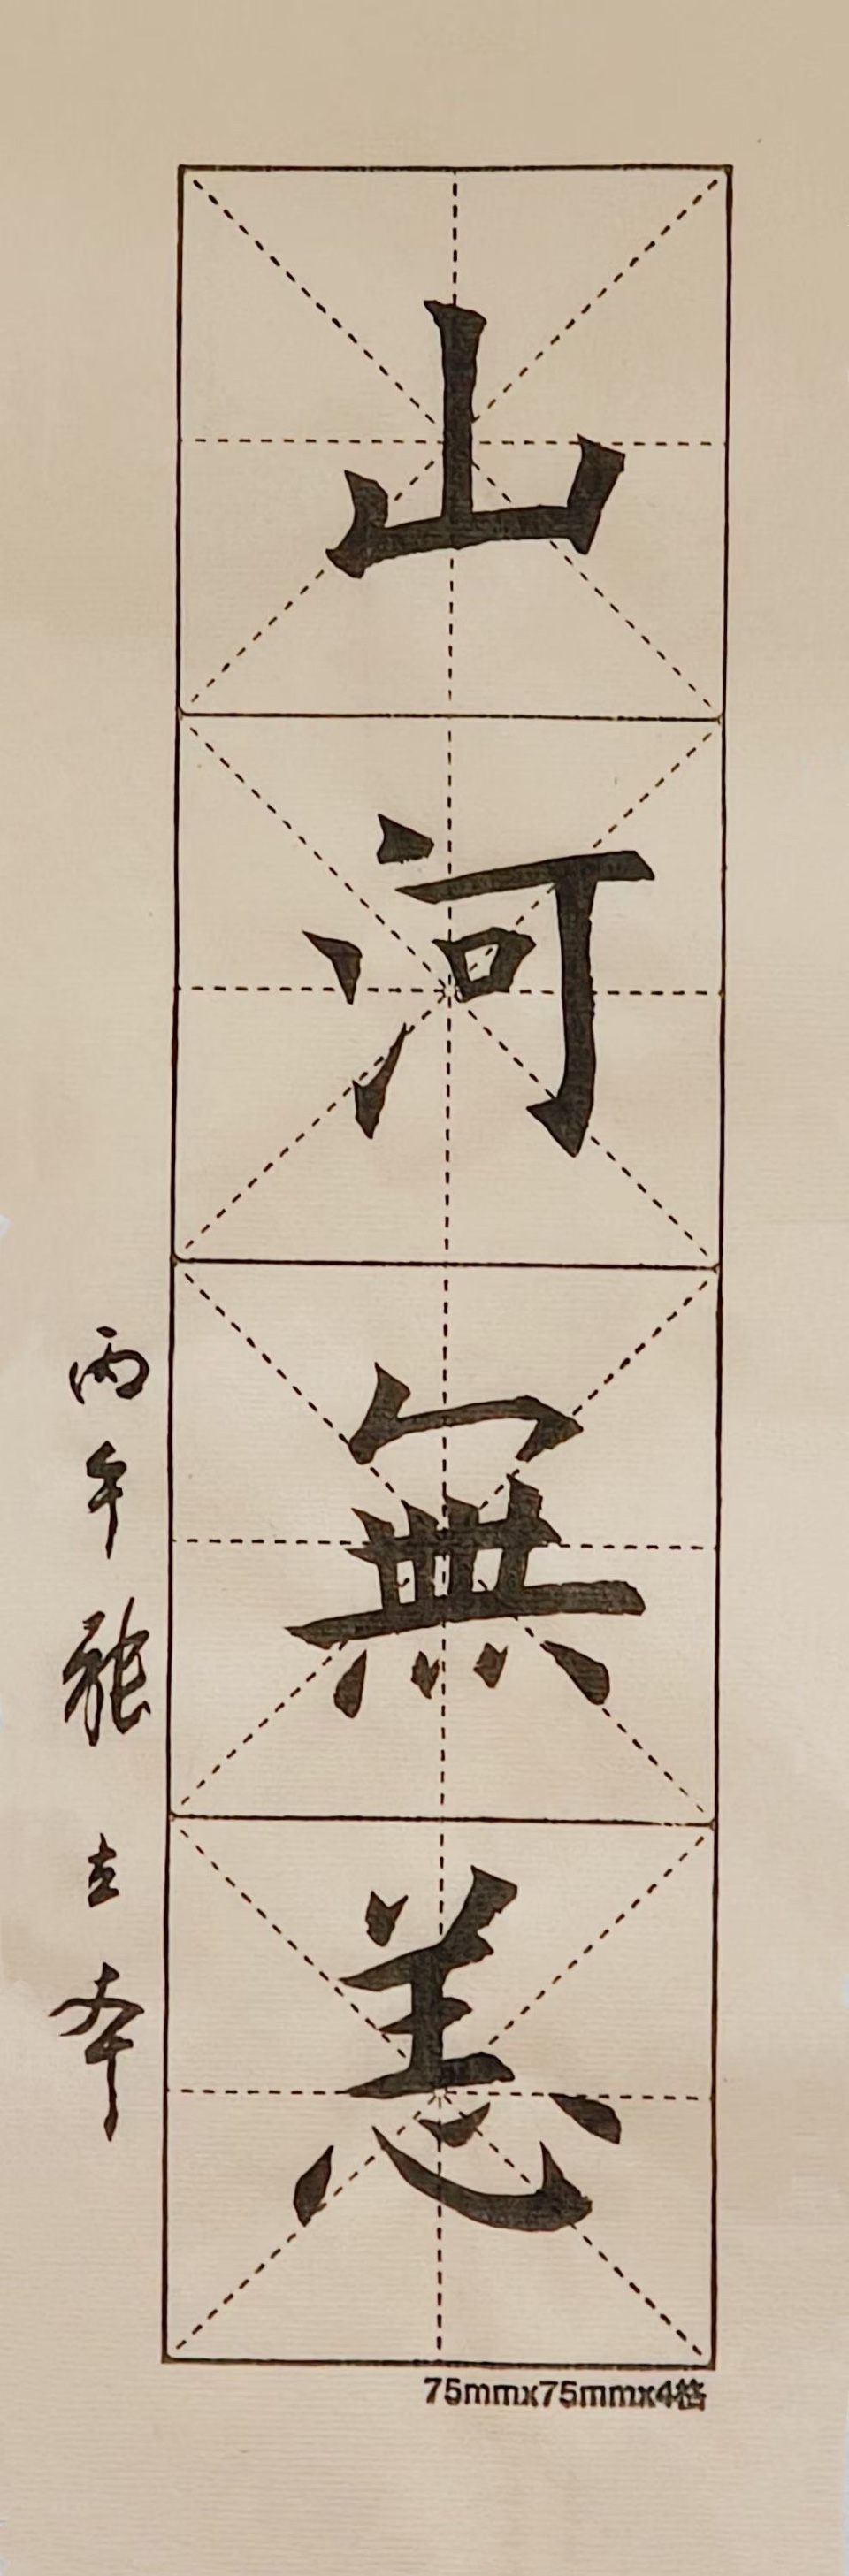 山河無恙
丙午張立本
75mmx75mmx4格